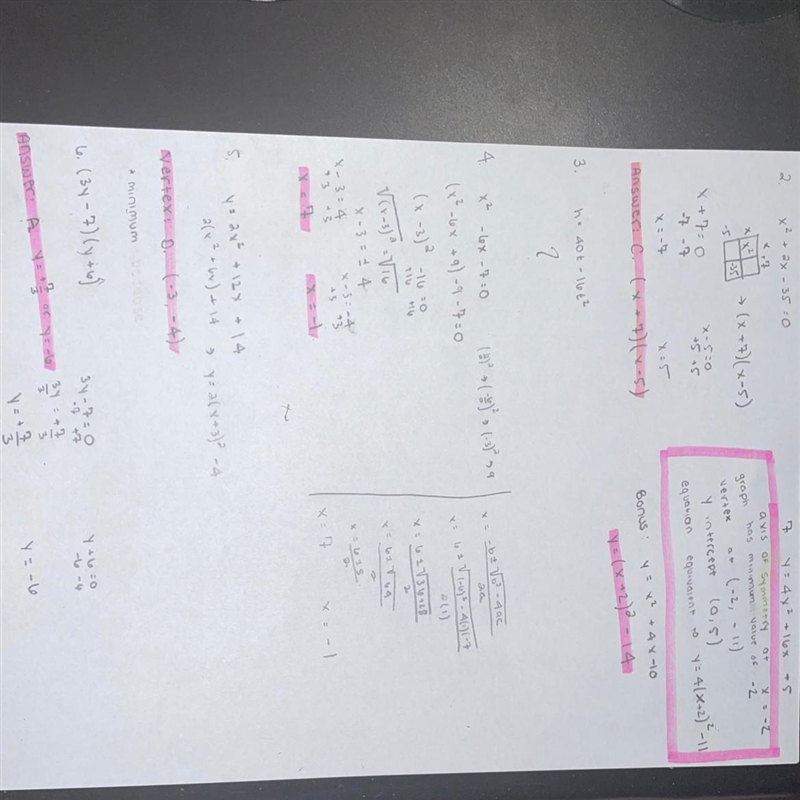 2. x² + 2x - 35 = 0
x +7
x x²
-5 -35
→ (x+7)(x-5)
x + 7 = 0
-7 -7
x = -7
x - 5 = 0
+5 +5
x = 5
Answer: C. (x+7)(x-5)
3. h = 40t - 16t²
?
4. x² - 6x - 7 = 0
(x² - 6x + 9) - 9 - 7 = 0
(x - 3)² - 16 = 0
+16 +16
√(x-3)² = √16
x - 3 = ± 4
x - 3 = 4
+3 +3
x = 7
x - 3 = -4
+3 +3
x = -1
x = -b ± √b² - 4ac
2a
x = 6 ± √(-6)² - 4(1)(-7
2(1)
x = 6 ± √36+28
2
x = 6 ± √64
2
x = 6 ± 8
2
x = 7 x = -1
5. y = 2x² + 12x + 14
→ y = 2(x+3)² - 4
Vertex: B. (-3, -4)
* minimum
6. (3y - 7)(y + 6)
3y - 7 = 0
+7 +7
3y = +7
3 3
y = +7
3
y + 6 = 0
-6 -6
y = -6
Answer: A. y = +7/3 or y = -6
7 y = 4x² + 16x + 5
axis of symmetry at x = -2
graph has minimum value of -2
vertex at (-2, -11)
y intercept (0,5)
equation equivalent to y = 4(x+2)² - 11
Bonus: y = x² + 4x - 10
y = (x + 2)² - 14